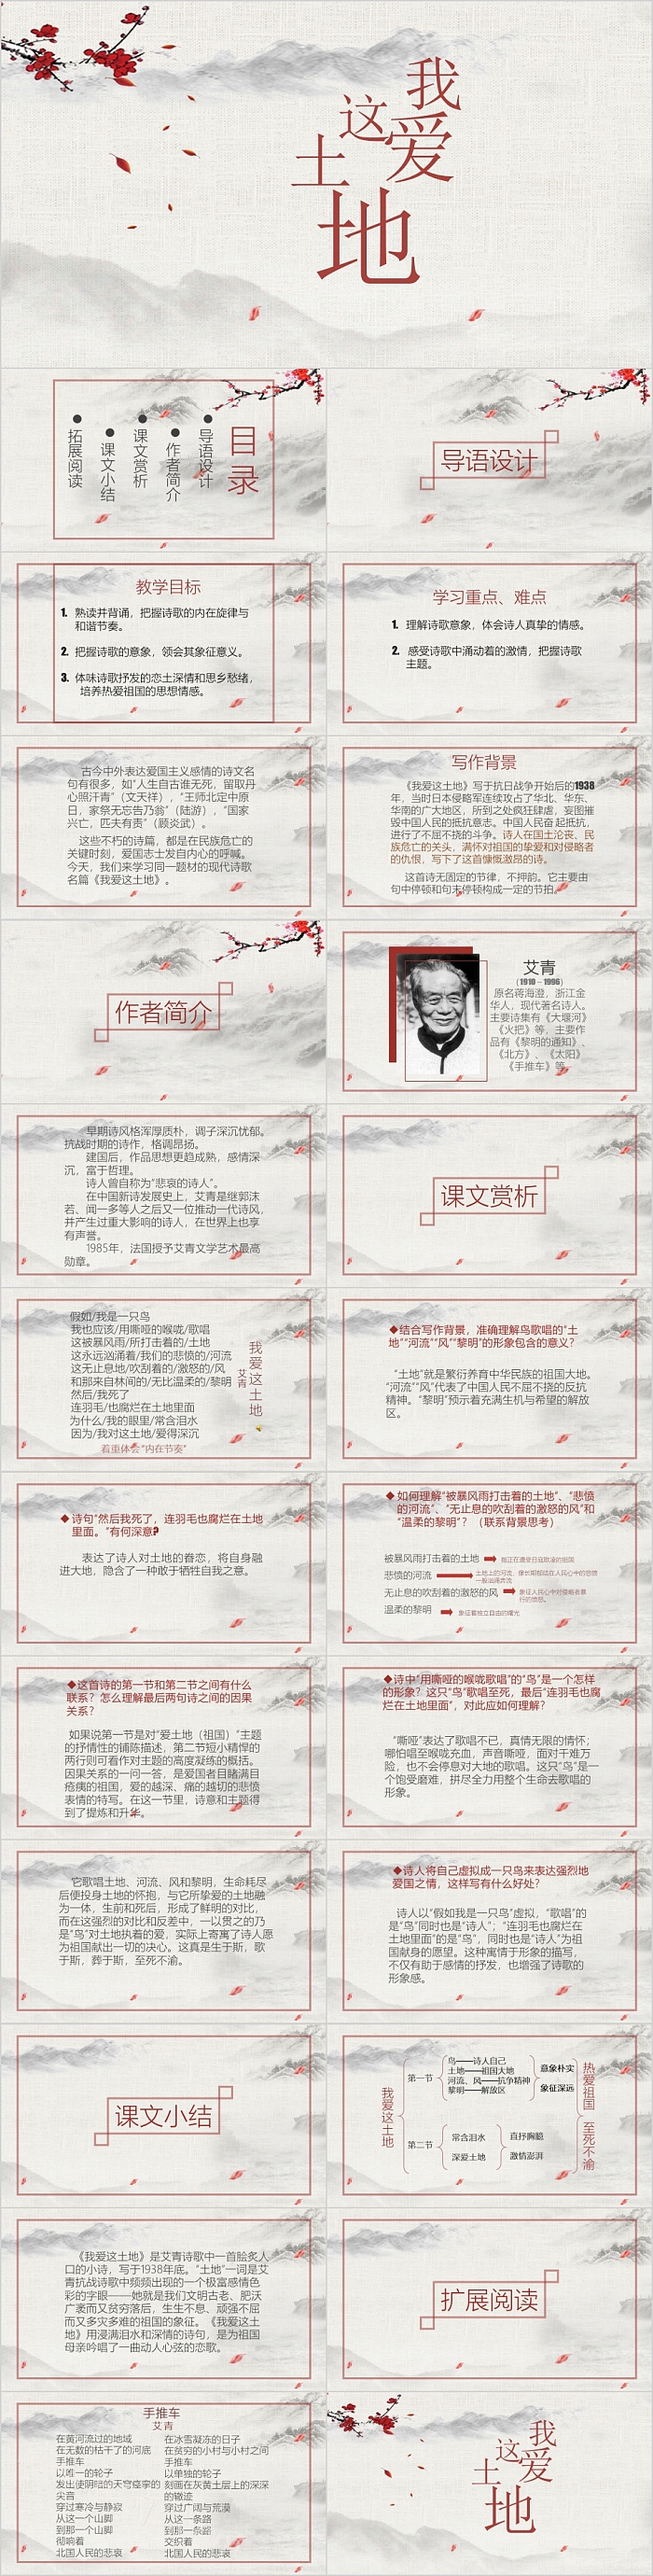 我爱
这土地
目录
导语设计
作者简介
课文赏析
课文小结
拓展阅读
导语设计
教学目标
1. 熟读并背诵，把握诗歌的内在旋律与
和谐节奏。
2. 把握诗歌的意象，领会其象征意义。
3. 体味诗歌抒发的恋土深情和思乡愁绪，
培养热爱祖国的思想情感。
学习重点、难点
1. 理解诗歌意象，体会诗人真挚的情感。
2. 感受诗歌中涌动着的激情，把握诗歌
主题。
古今中外表达爱国主义感情的诗文名
句有很多，如“人生自古谁无死，留取丹
心照汗青”（文天祥），“王师北定中原
日，家祭无忘告乃翁”（陆游），“国家
兴亡，匹夫有责”（顾炎武）。
这些不朽的诗篇，都是在民族危亡的
关键时刻，爱国志士发自内心的呼喊。
今天，我们来学习同一题材的现代诗歌
名篇《我爱这土地》。
写作背景
《我爱这土地》写于抗日战争开始后的1938
年，当时日本侵略军连续攻占了华北、华东、
华南的广大地区，所到之处疯狂肆虐，妄图摧
毁中国人民的抵抗意志。中国人民奋起抵抗，
进行了不屈不挠的斗争。诗人在国土沦丧、民
族危亡的关头，满怀对祖国的挚爱和对侵略者
的仇恨，写下了这首慷慨激昂的诗。
这首诗无固定的节律，不押韵。它主要由
句中停顿和句末停顿构成一定的节拍。
作者简介
艾青
（1910－1996）
原名蒋海澄，浙江金
华人，现代著名诗人。
主要诗集有《大堰河》
《火把》等，主要作
品有《黎明的通知》、
《北方》、《太阳》
《手推车》等。
早期诗风格浑厚质朴，调子深沉忧郁。
抗战时期的诗作，格调昂扬。
建国后，作品思想更趋成熟，感情深
沉，富于哲理。
诗人曾自称为“悲哀的诗人”。
在中国新诗发展史上，艾青是继郭沫
若、闻一多等人之后又一位推动一代诗风，
并产生过重大影响的诗人，在世界上也享
有声誉。
1985年，法国授予艾青文学艺术最高
勋章。
课文赏析
我爱这土地
艾青
假如/我是一只鸟
我也应该/用嘶哑的喉咙/歌唱
这被暴风雨/所打击着的/土地
这永远汹涌着/我们的悲愤的/河流
这无止息地/吹刮着的/激怒的/风
和那来自林间的/无比温柔的/黎明
然后/我死了
连羽毛/也腐烂在土地里面
为什么/我的眼里/常含泪水
因为/我对这土地/爱得深沉
着重体会“内在节奏”
◆结合写作背景，准确理解鸟歌唱的“土
地”“河流”“风”“黎明”的形象包含的意义？
“土地”就是繁衍养育中华民族的祖国大地。
“河流”“风”代表了中国人民不屈不挠的反抗
精神。“黎明”预示着充满生机与希望的解放
区。
◆诗句“然后我死了，连羽毛也腐烂在土地
里面。”有何深意?
表达了诗人对土地的眷恋，将自身融
进大地，隐含了一种敢于牺牲自我之意。
◆如何理解“被暴风雨打击着的土地”、“悲愤
的河流”、“无止息的吹刮着的激怒的风”和
“温柔的黎明”？（联系背景思考）
被暴风雨打击着的土地
悲愤的河流
无止息的吹刮着的激怒的风
温柔的黎明
象征着独立自由的曙光
◆这首诗的第一节和第二节之间有什么
联系？怎么理解最后两句诗之间的因果
关系？
如果说第一节是对“爱土地（祖国）”主题
的抒情性的铺陈描述，第二节短小精悍的
两行则可看作对主题的高度凝练的概括。
因果关系的一问一答，是爱国者目睹满目
疮痍的祖国，爱的越深、痛的越切的悲愤
表情的特写。在这一节里，诗意和主题得
到了提炼和升华。
◆诗中“用嘶哑的喉咙歌唱”的“鸟”是一个怎样
的形象？这只“鸟”歌唱至死，最后“连羽毛也腐
烂在土地里面”，对此应如何理解？
“嘶哑”表达了歌唱不已，真情无限的情怀；
哪怕唱至喉咙充血，声音嘶哑，面对千难万
险，也不会停息对大地的歌唱。这只“鸟”是一
个饱受磨难，拼尽全力用整个生命去歌唱的
形象。
它歌唱土地、河流、风和黎明，生命耗尽
后便投身土地的怀抱，与它所挚爱的土地融
为一体，生前和死后，形成了鲜明的对比，
而在这强烈的对比和反差中，一以贯之的乃
是“鸟”对土地执着的爱，实际上寄寓了诗人愿
为祖国献出一切的决心。这真是生于斯，歌
于斯，葬于斯，至死不渝。
◆诗人将自己虚拟成一只鸟来表达强烈地
爱国之情，这样写有什么好处？
诗人以“假如我是一只鸟”虚拟，“歌唱”的
是“鸟”同时也是“诗人”；“连羽毛也腐烂在
土地里面”的是“鸟”，同时也是“诗人”为祖
国献身的愿望。这种寓情于形象的描写，
不仅有助于感情的抒发，也增强了诗歌的
形象感。
课文小结
我爱这土地
第一节
鸟——诗人自己
土地——祖国大地
河流、风——抗争精神
黎明——解放区
意象朴实
象征深远
第二节
常含泪水
深爱土地
直抒胸臆
激情澎湃
热爱祖国 至死不渝
《我爱这土地》是艾青诗歌中一首脍炙人
口的小诗，写于1938年底。“土地”一词是艾
青抗战诗歌中频频出现的一个极富感情色
彩的字眼——她就是我们文明古老、肥沃
广袤而又贫穷落后，生生不息、顽强不屈
而又多灾多难的祖国的象征。《我爱这土
地》用浸满泪水和深情的诗句，是为祖国
母亲吟唱了一曲动人心弦的恋歌。
扩展阅读
手推车
艾青
在黄河流过的地域
在无数的枯干了的河底
手推车
以唯一的轮子
发出使阴暗的天穹痉挛的
尖音
穿过寒冷与静寂
从这一个山脚
到那一个山脚
彻响着
北国人民的悲哀
在冰雪凝冻的日子
在贫穷的小村与小村之间
手推车
以单独的轮子
刻画在灰黄土层上的深深
的辙迹
穿过广阔与荒漠
从这一条路
到那一条路
交织着
北国人民的悲哀
我爱
这土地